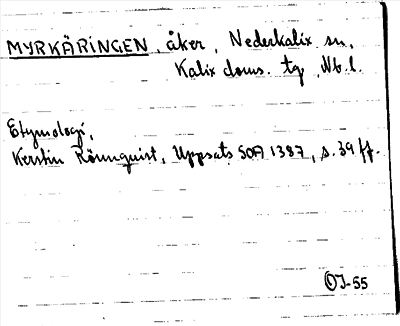 MYRKÄRINGEN, åker, Nederkalix sn,
Kalix doms. tg, Nb.l.
Etymologi,
Kerstin Rönnquist, Uppsats SOA 1387, s. 39 ff.
OJ-55